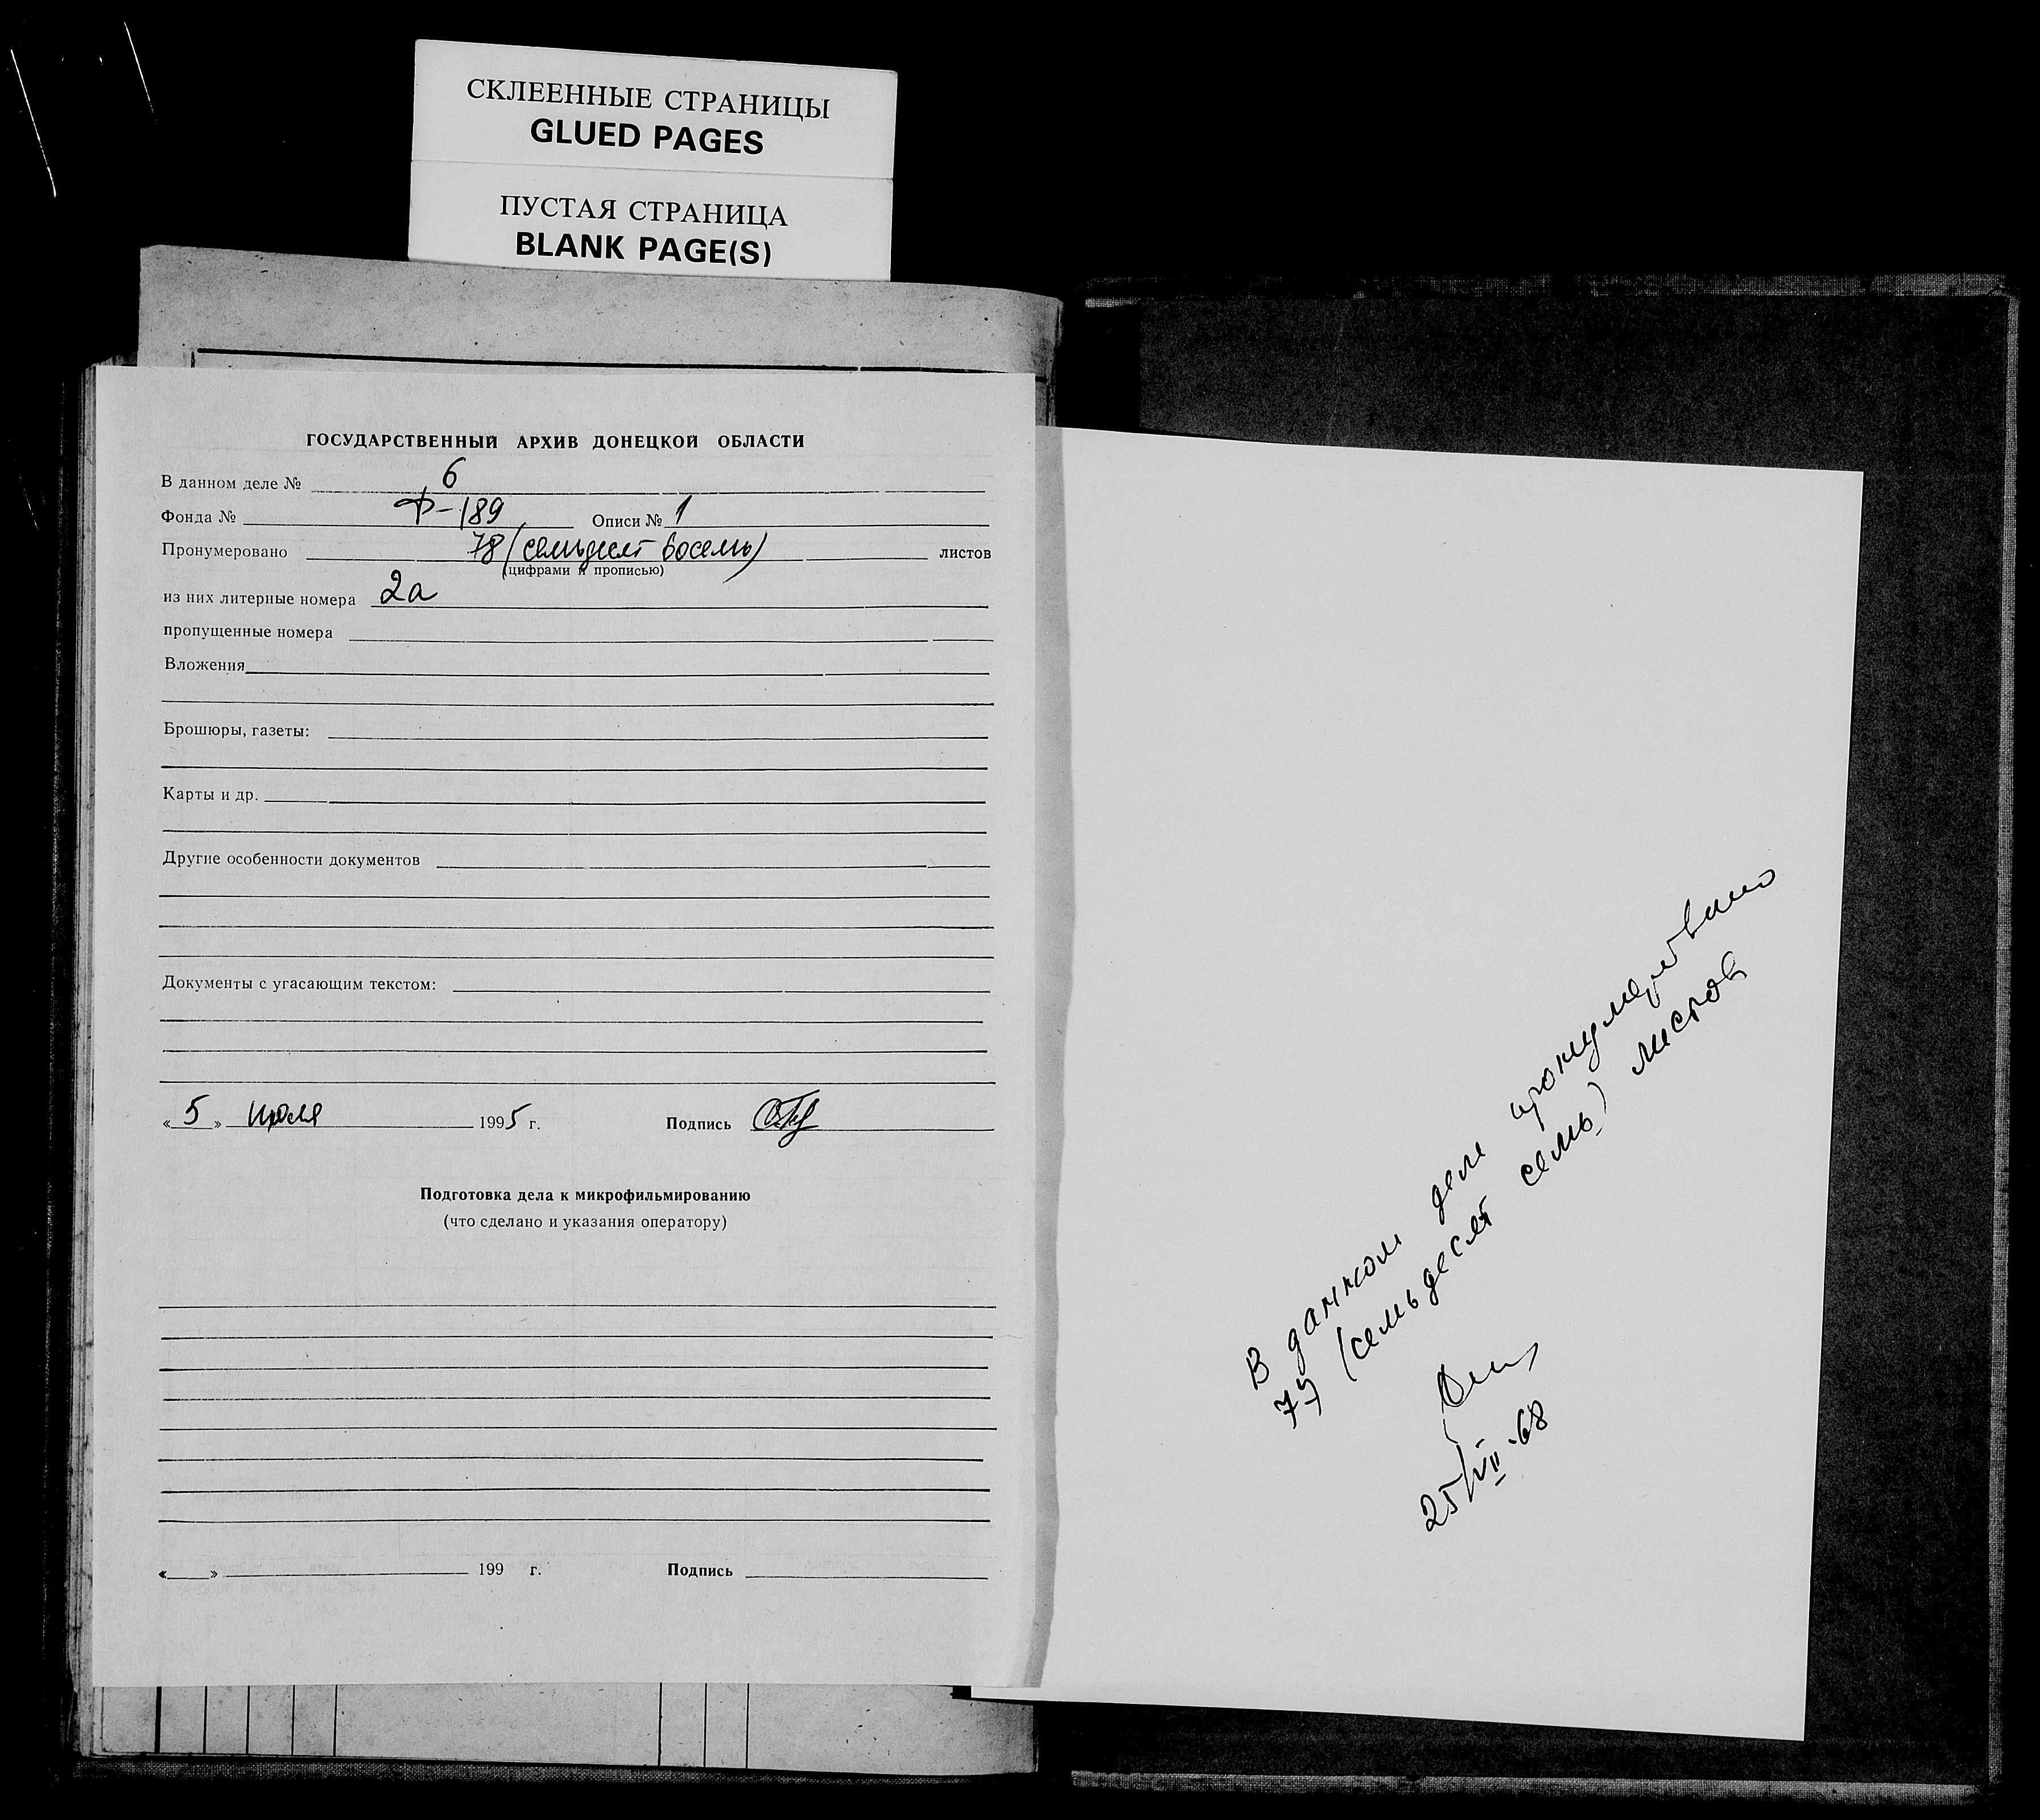 СКЛЕЕННЫЕ СТРАНИЦЫ
GLUED PAGES
ПУСТАЯ СТРАНИЦА
BLANK PAGE(S)
ГОСУДАРСТВЕННЫЙ АРХИВ ДОНЕЦКОЙ ОБЛАСТИ
В данном деле № 6
Фонда № Ф-189 Описи № 1
Пронумеровано 78 (семьдесят восемь) листов
(цифрами и прописью)
из них литерные номера 2а
пропущенные номера
Вложения
Брошюры, газеты:
Карты и др.
Другие особенности документов
Документы с угасающим текстом:
«5» июля 1995 г. Подпись
Подготовка дела к микрофильмированию
(что сделано и указания оператору)
« » 199 г. Подпись
В данном деле пронумеровано
77 (семьдесят семь) листов
25/VII-68